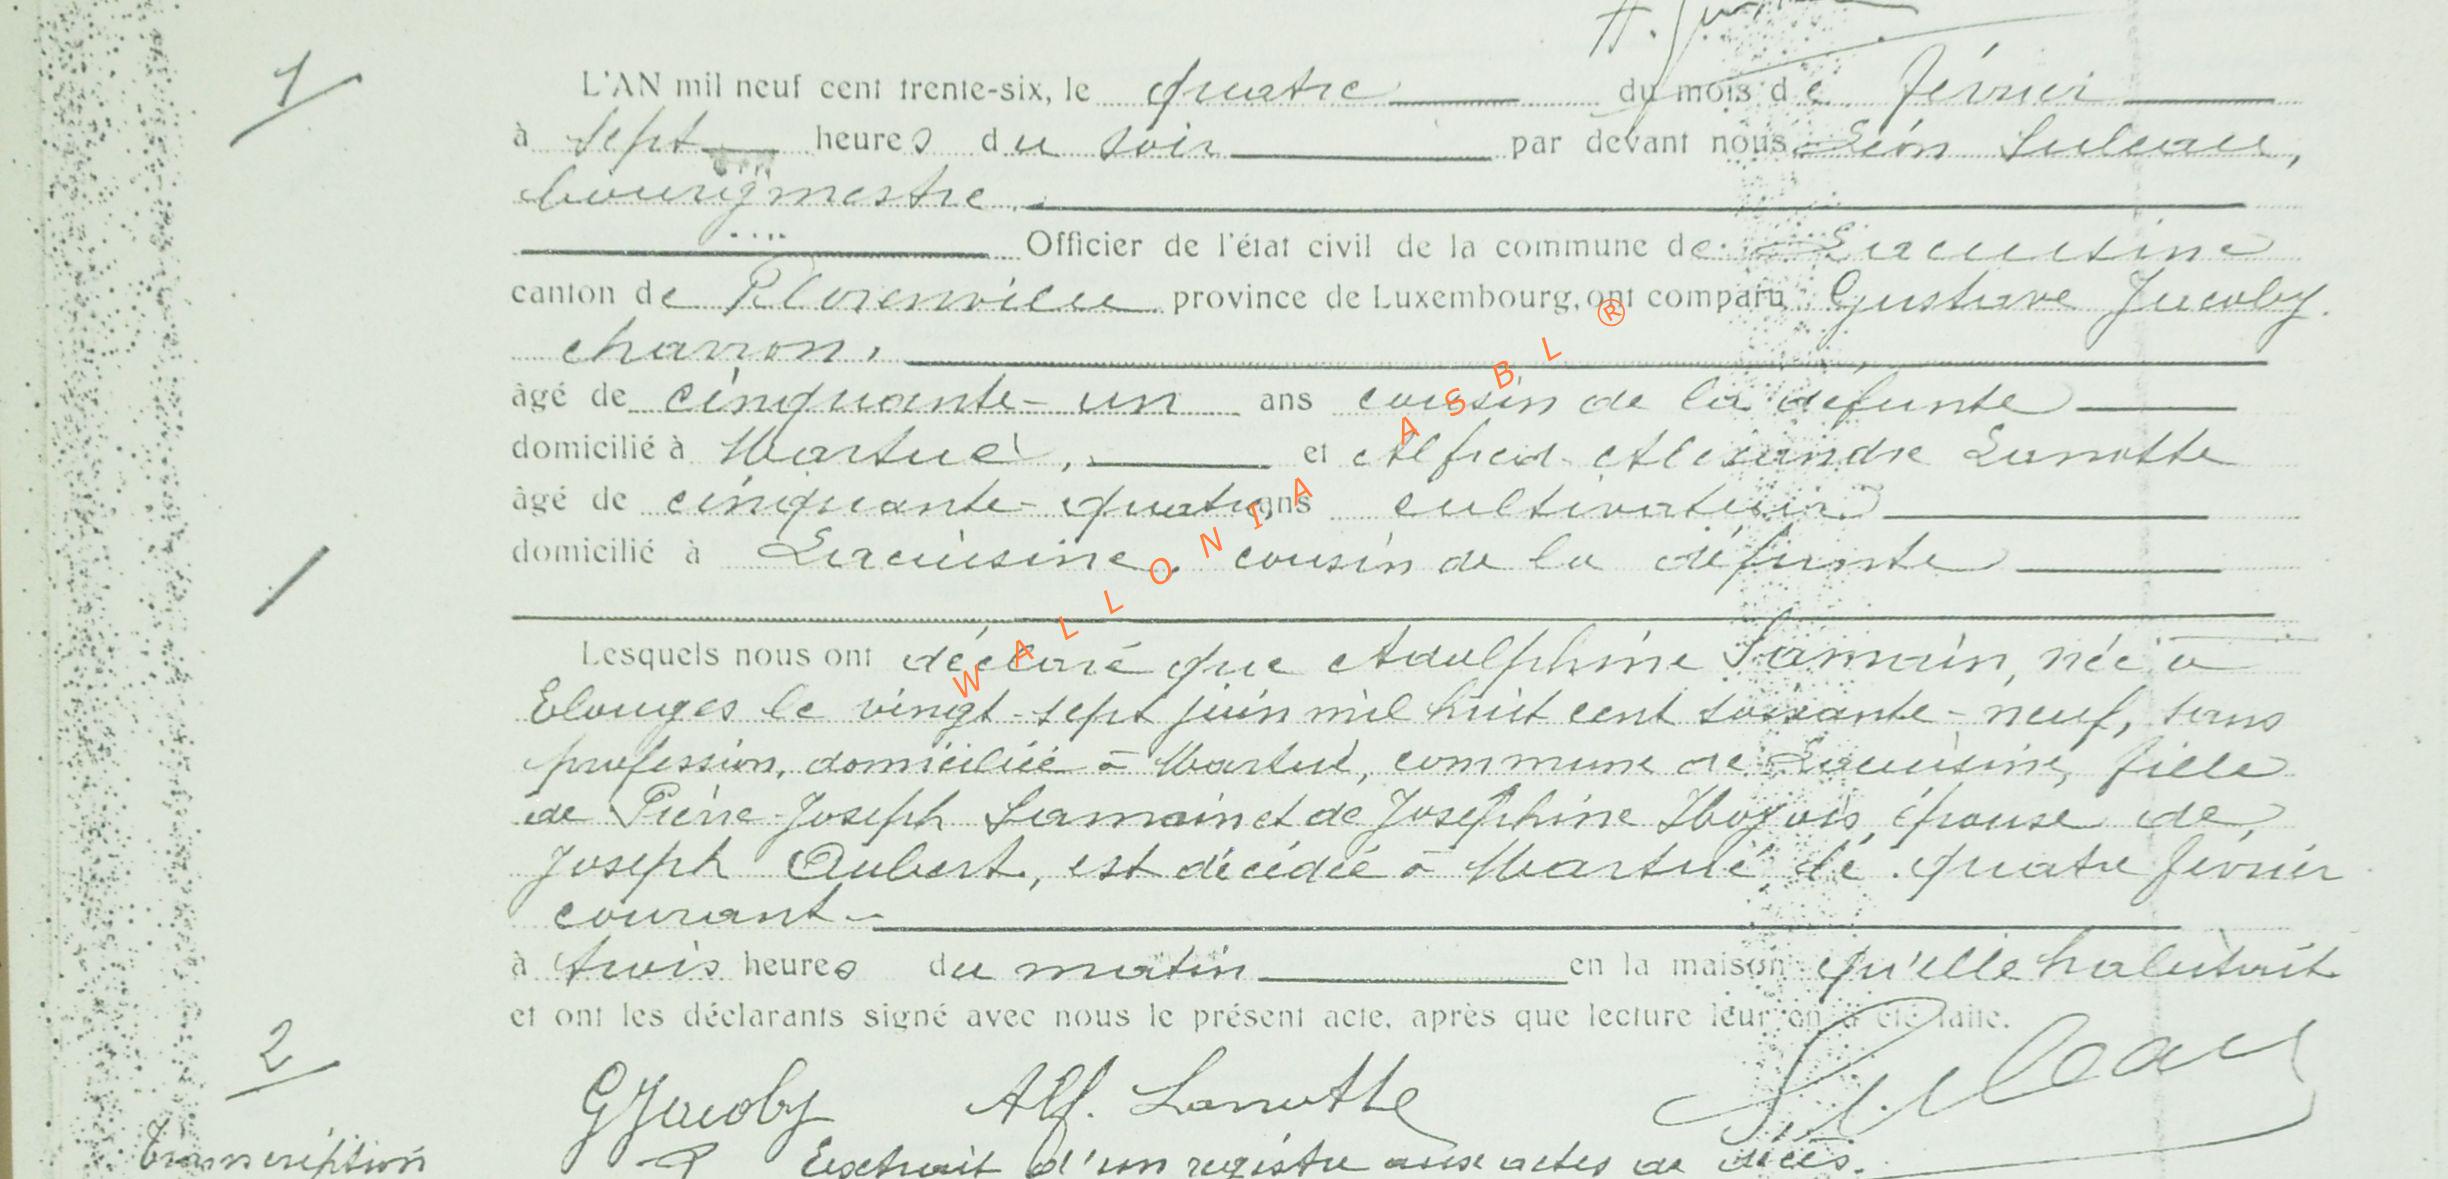 1
L'AN mil neuf cent trente-six, le quatre du mois de février
à sept heures du soir par devant nous Léon Suleau,
bourgmestre.
Officier de l'état civil de la commune de Lacuisine
canton de Florenville province de Luxembourg, ont comparu Gustave Jacoby.
charron,
âgé de cinquante-un ans cousin de la défunte
domicilié à Martué, et Alfred Alexandre Lanotte
âgé de cinquante-quatre ans cultivateur
domicilié à Lacuisine, cousin de la défunte
Lesquels nous ont déclaré que Adolphine Samain, née à
Elouges le vingt-sept juin mil huit cent soixante-neuf, sans
profession, domiciliée à Martué, commune de Lacuisine, fille
de Pierre-Joseph Samain et de Joséphine épouse de
Joseph Aubert, est décédée à Martué, le quatre février
courant
à trois heures du matin en la maison qu'elle habitait
et ont les déclarants signé avec nous le présent acte, après que lecture leur en a été faite.
2
GJacoby Alf. Lanotte Suleau
Transcription
Extrait d'un registre aux actes de décès.
WALLONIA ASBL ®